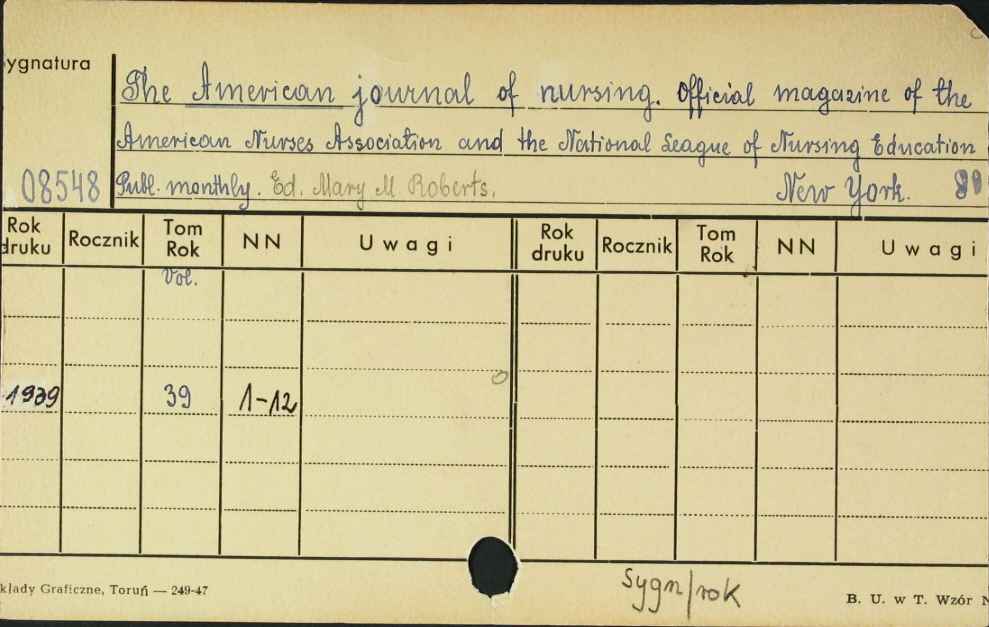 ygnatura
The American journal of nursing. Official magazine of the
American Nurses Association and the National League of Nursing Education
08548 Publ. monthly. Ed. Mary M. Roberts. New York.
Rok druku Rocznik Tom Rok NN Uwagi Rok druku Rocznik Tom Rok NN Uwagi
Vol.
1939 39 1-12
Sygn/rok
kłady Graficzne, Toruń — 249-47 B. U. w T. Wzór N